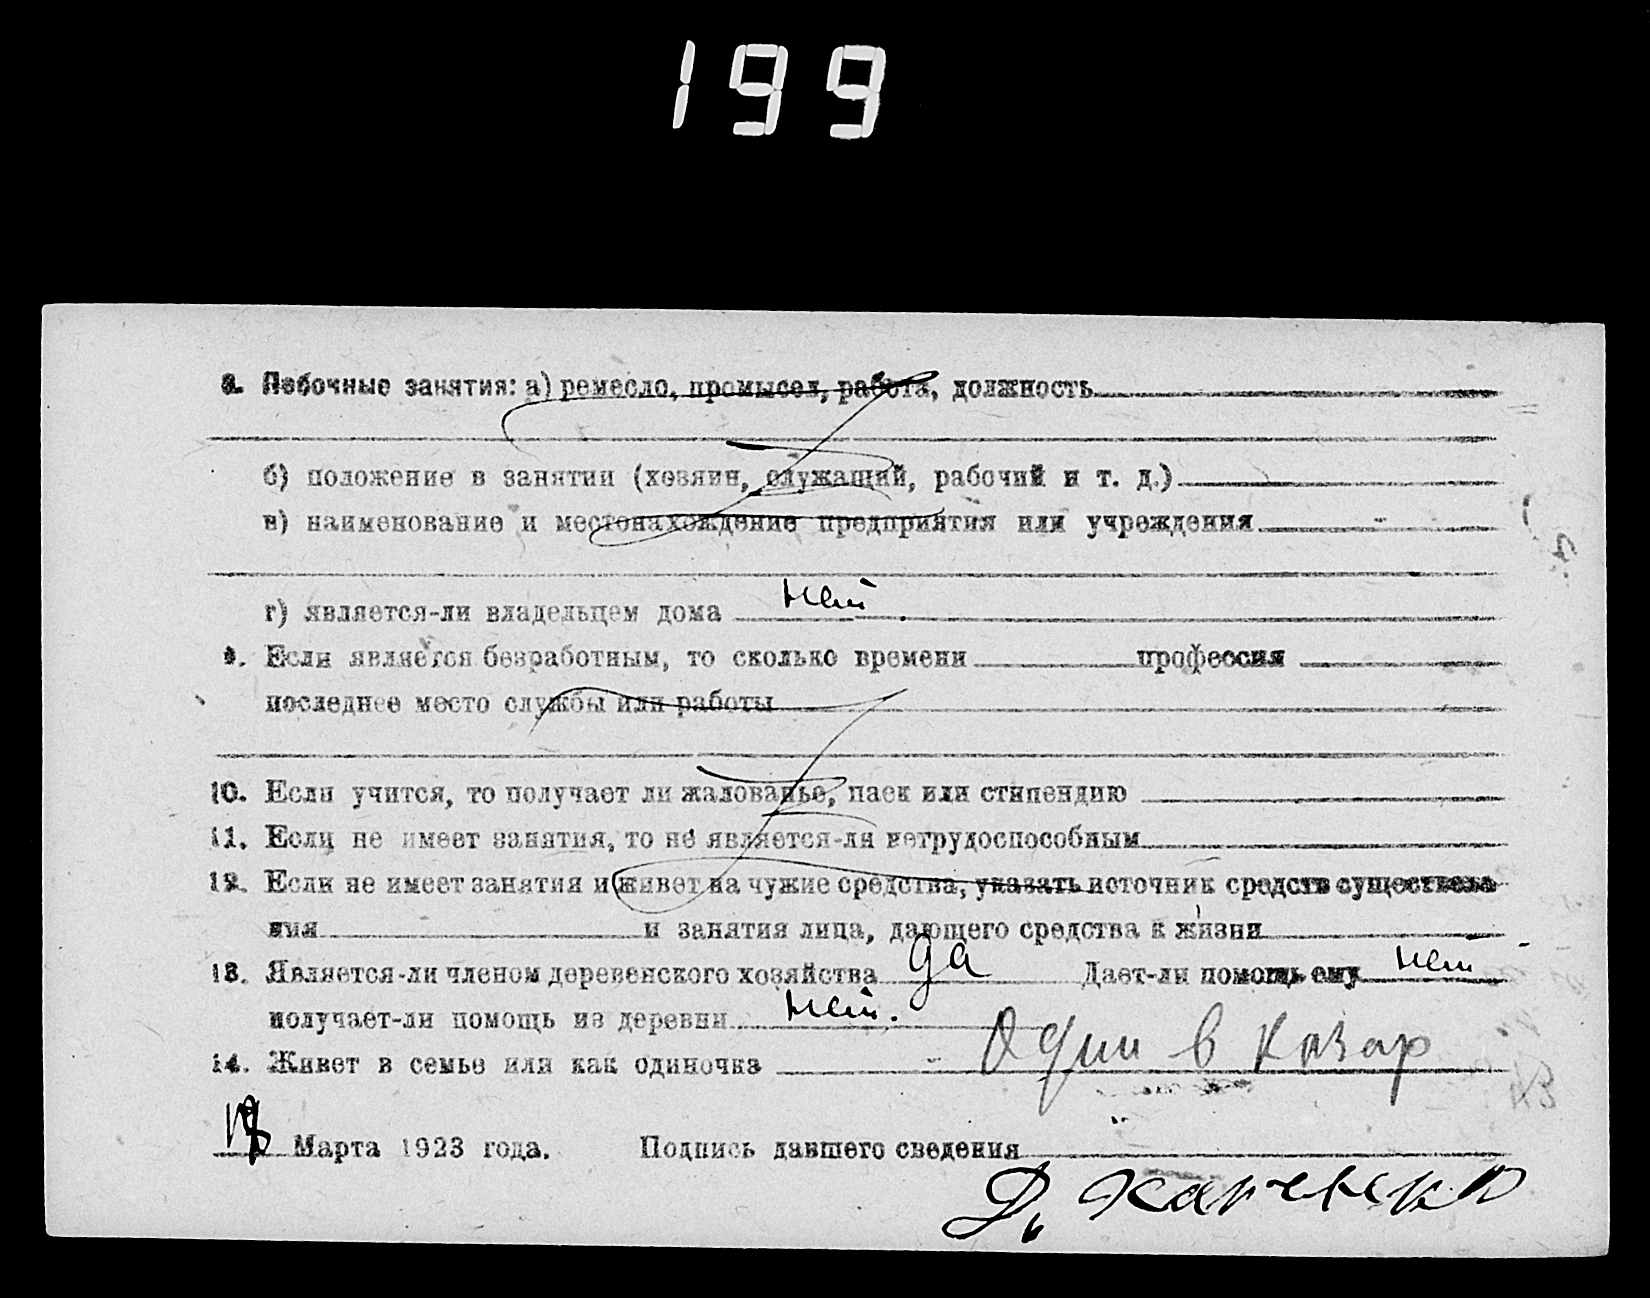 199
8. Побочные занятия: а) ремесло, промысел, работа, должность
б) положение в занятии (хозяин, служащий, рабочий и т. д.)
в) наименование и местонахождение предприятия или учреждения
г) является-ли владельцем дома нет.
9. Если является безработным, то сколько времени профессия
последнее место службы или работы
10. Если учится, то получает ли жалованье, паек или стипендию
11. Если не имеет занятия, то не является-ли нетрудоспособным
12. Если не имеет занятия и живет на чужие средства, указать источник средств существова
ния и занятия лица, дающего средства к жизни
13. Является-ли членом деревенского хозяйства да Дает-ли помощь ему нет
получает-ли помощь из деревни нет.
14. Живет в семье или как одиночка Один в казар
Марта 1923 года. Подпись давшего сведения